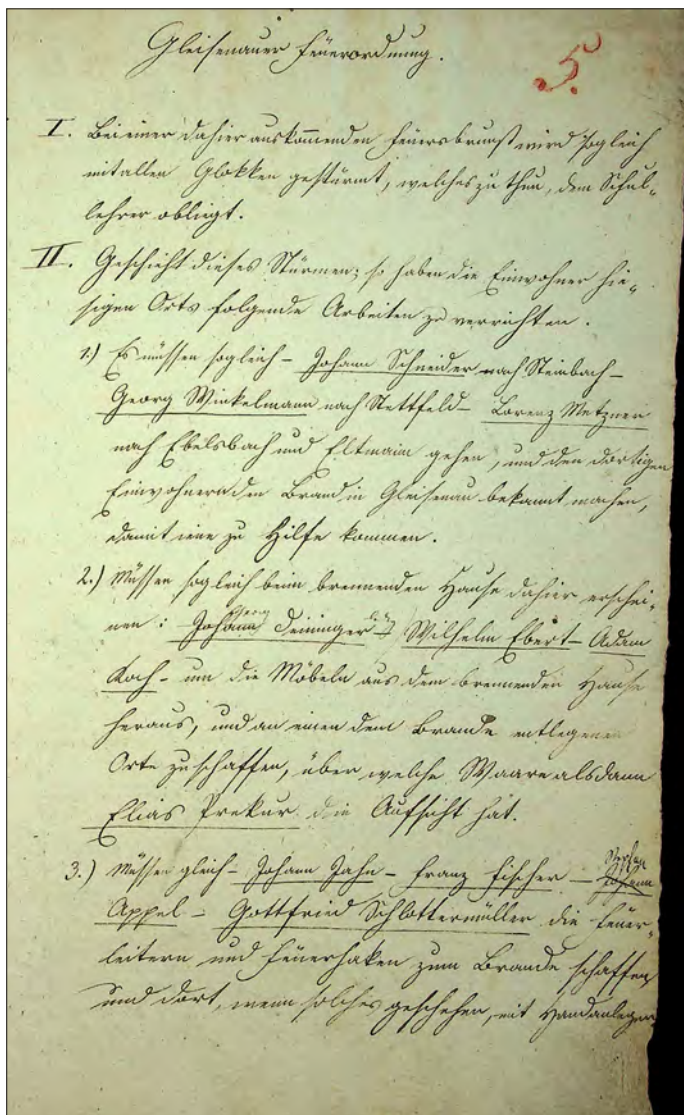 Gleisenauer Feuerordnung.
5.
I. Bei einer dahier auskommenden Feuersbrunst wird sogleich
mit allen Glokken gestürmt, welches zu thun, dem Schul-
lehrer obliegt.
II. Geschieht dieses Stürmen; so haben die Einwohner hie-
sigen Orts folgende Arbeiten zu verrichten.
1.) Es müssen sogleich – Johann Schneider nach Steinbach –
Georg Winkelmann nach Stettfeld – Lorenz Metzner
nach Ebelsbach und Eltmann gehen, und den dortigen
Einwohnern den Brand in Gleisenau bekannt machen,
damit jene zu Hilfe kommen.
2.) Müssen sogleich beim brennenden Hause dahier erschei-
Georg
nen: Johann Deininger – Wilhelm Ebert – Adam
Koch – um die Möbeln aus dem brennenden Hause
heraus, und an einen dem Brande entlegenen
Orte zu schaffen, über welche Waare alsdann
Elias Prekur die Aufsicht hat.
3.) Müssen gleich – Johann Jahn – Franz Fischer – Johann
Appel – Gottfried Schlottermüller die Feuer-
leitern und Feuerhaken zum Brande schaffen
und dort, wenn solches geschehen, mit Handanlegen